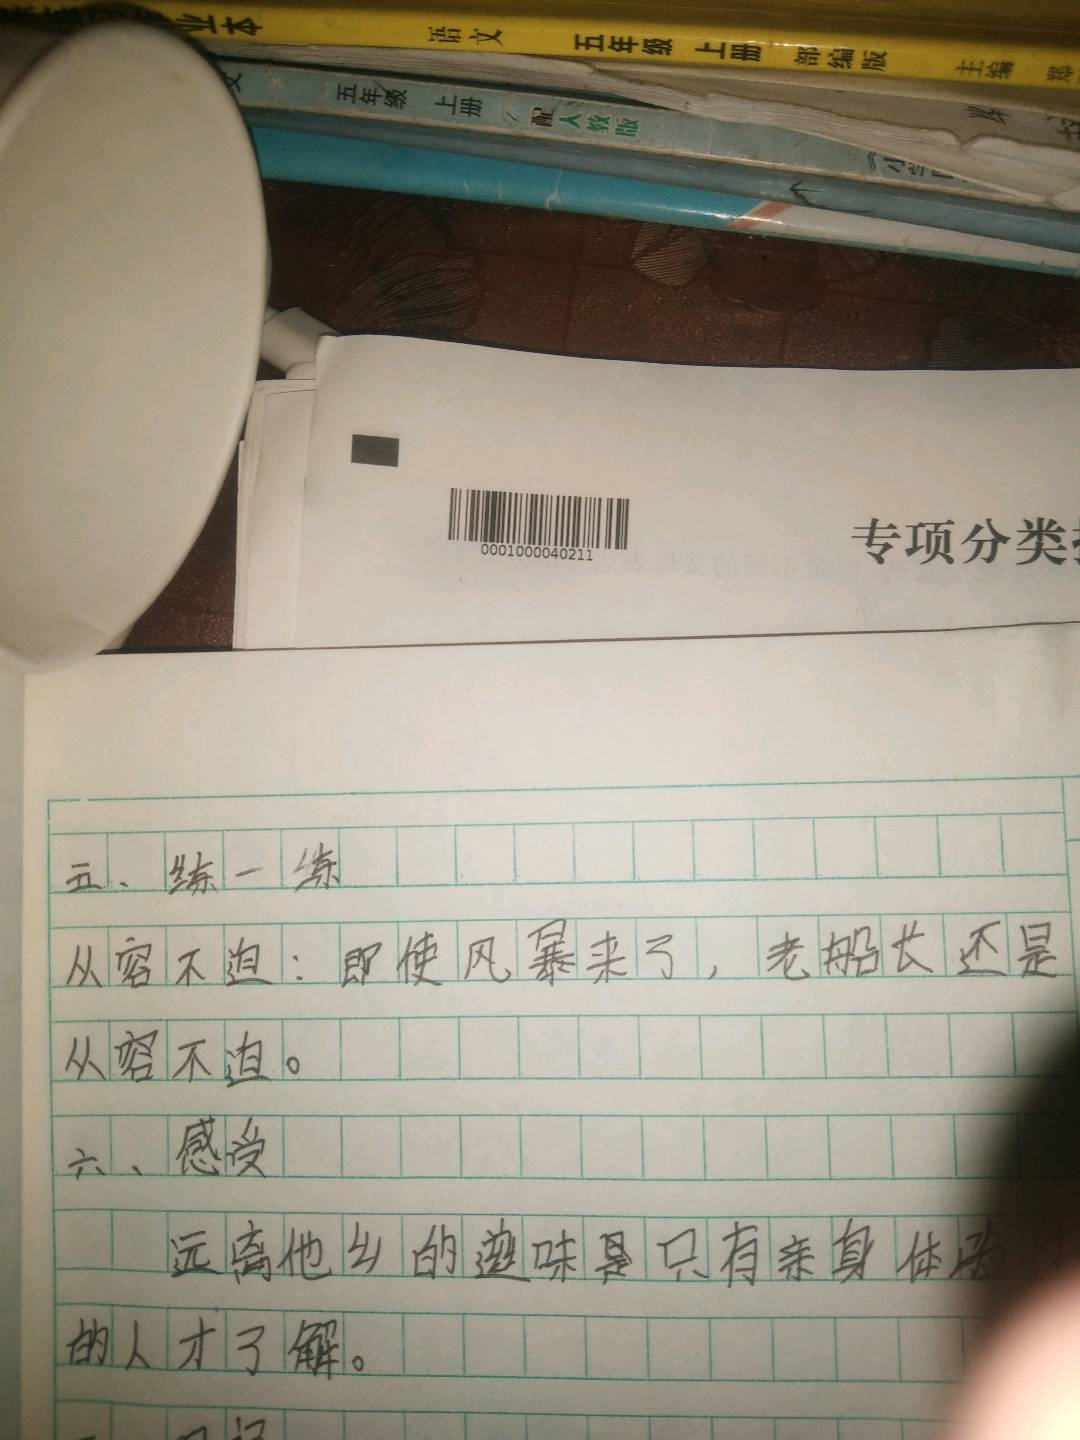 业本 语文 五年级 上册 部编版 主编 郑
文 五年级 上册 配人教版
专项分类
0001000040211
五、练一练
从容不迫：即使风暴来了，老船长还是
从容不迫。
六、感受
远离他乡的滋味是只有亲身体验
的人才了解。